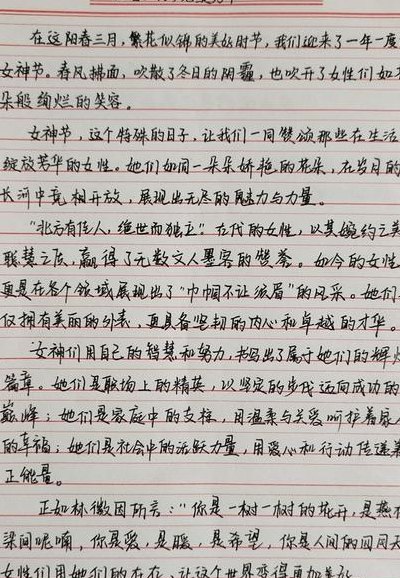 在这阳春三月，繁花似锦的美好时节，我们迎来了一年一度
女神节。春风拂面，吹散了冬日的阴霾，也吹开了女性们如
朵般绚烂的笑容。
女神节，这个特殊的日子，让我们一同赞颂那些在生活
绽放芳华的女性。她们如同一朵朵娇艳的花朵，在岁月的
长河中竞相开放，展现出无尽的魅力与力量。
“北方有佳人，绝世而独立”古代的女性，以其婉约之美
聪慧之质，赢得了无数文人墨客的赞誉。如今的女性
更是在各个领域展现出了“巾帼不让须眉”的风采。她们
仅拥有美丽的外表，更具备坚韧的内心和卓越的才华。
女神们用自己的智慧和努力，书写出了属于她们的辉煌
篇章。她们是职场上的精英，以坚定的步伐迈向成功的
巅峰；她们是家庭中的支柱，用温柔与关爱呵护着家人
的幸福；她们是社会中的活跃力量，用爱心和行动传递着
正能量。
正如林徽因所言：“你是一树一树的花开，是燕在
梁间呢喃，你是爱，是暖，是希望，你是人间的四月天
女性们用她们的存在，让这个世界变得更加美好